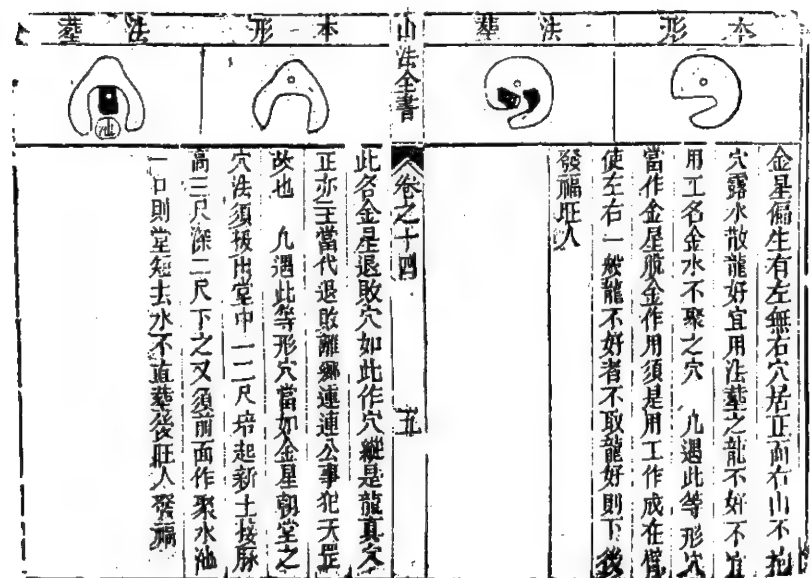 本形
葬法
金星偏生有左無右穴居正面右山不抱
穴露水散龍好宜用法葬之龍不好不宜
用工名金水不聚之穴 凡遇此等形穴
當作金星脫金作用須是用工作成在僧
使左右一般龍不好者不取龍好則下後
發福旺人
山法全書
卷之十四
五
本形
葬法
池
此名金星退敗穴如此作穴縱是龍真穴
正亦主當代退敗離鄉連連公事犯天罡
故也 凡遇此等形穴當如金星朝堂之
穴法須拔出堂中一二尺培起新土接脉
高三尺深二尺下之又須前面作聚水池
一口則堂短去水不直葬後旺人發福